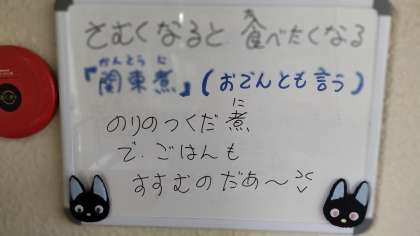 さむくなると 食べたくなる
『関東煮』(おでんとも言う)
のりのつくだ煮
で、ごはんも
すすむのだあ〜